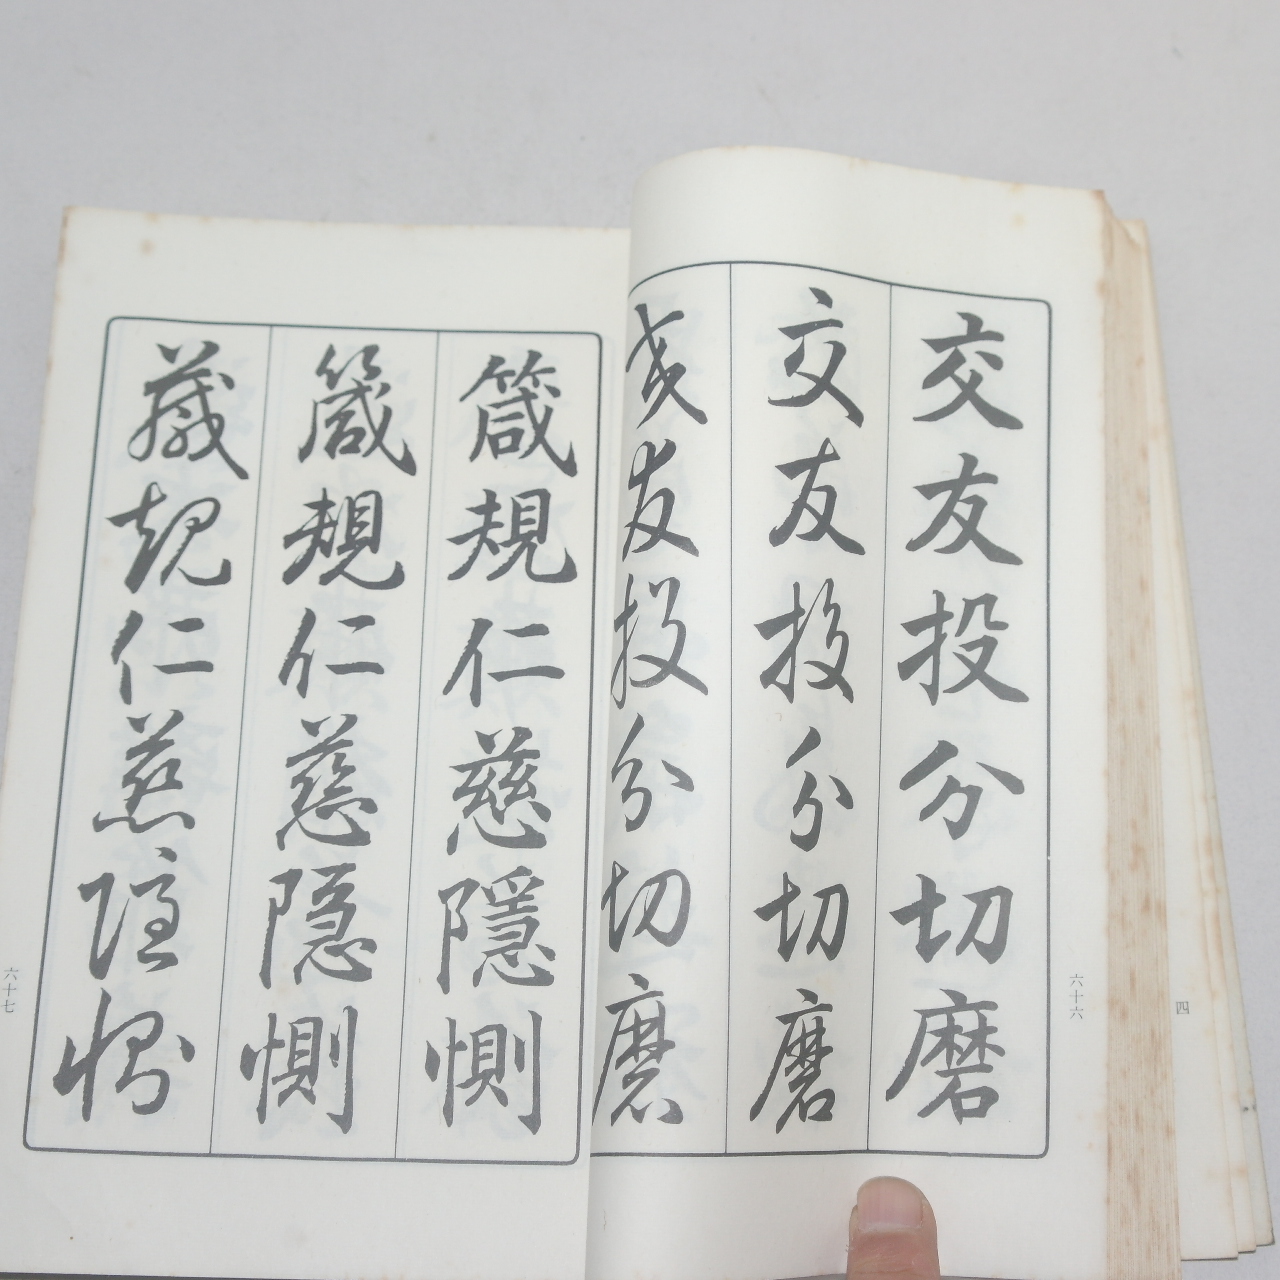 交友投分切磨
交友投分切磨
交友投分切磨
六十六
箴規仁慈隱惻
箴規仁慈隱惻
箴規仁慈隱惻
六十七
四